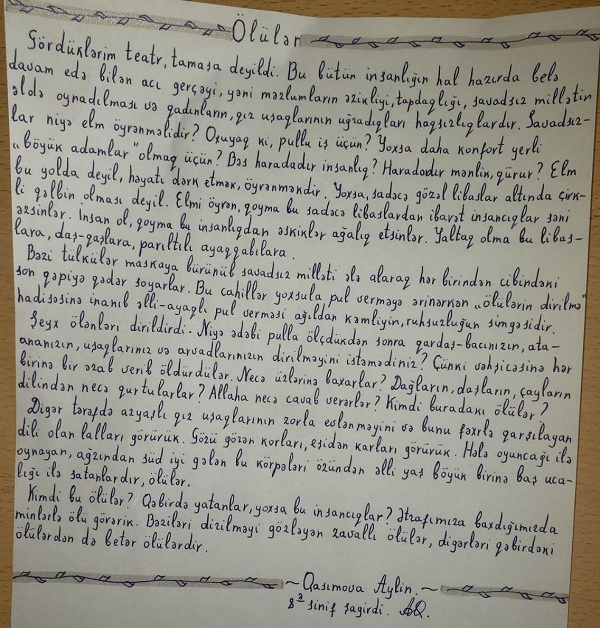 Ölülər
Gördüklərim teatr, tamaşa deyildi. Bu bütün insanlığın hal hazırda belə
davam edə bilən acı gerçəyi, yəni məzlumların əzikliyi, tapdaqlığı, savadsız millətin
əldə oynadılması və qadınların, qız uşaqlarının uğradıqları haqsızlıqlardır. Savadsız-
lar niyə elm öyrənməlidir? Oxuyaq ki, pullu iş üçün? Yoxsa daha konfort yerli
"böyük adamlar" olmaq üçün? Bəs haradadır insanlıq? Haradadır mənlik, qürur? Elm
bu yolda deyil, həyatı dərk etmək, öyrənməkdir. Yoxsa, sadəcə gözəl libaslar altında çirk-
li qəlbin olması deyil. Elmi öyrən, qoyma bu sadəcə libaslardan ibarət insancıqlar səni
əzsinlər. İnsan ol, qoyma bu insanlıqdan əskiklər ağalıq etsinlər. Yaltaq olma bu libas-
lara, daş-qaşlara, parıltılı ayaqqabılara.
Bəzi tülkülər maskaya bürünüb savadsız milləti ələ alaraq hər birindən cibindəki
son qəpiyə qədər soyarlar. Bu cahillər yoxsula pul verməyə ərinərkən "ölülərin dirilmə"
hadisəsinə inanıb əlli-ayaqlı pul verməsi ağıldan kəmliyin, ruhsuzluğun simgəsidir.
Şeyx ölənləri dirildirdi. Niyə ədəbi pulla ölçdükdən sonra qardaş-bacınızın, ata-
ananızın, uşaqlarınız və arvadlarınızın dirilməyini istəmədiniz? Çünki vəhşicəsinə hər
birinə bir əzab verib öldürdülər. Necə üzlərinə baxarlar? Dağların, daşların, çayların
dilindən necə qurtularlar? Allaha necə cavab verərlər? Kimdi buradakı ölülər?
Digər tərəfdə azyaşlı qız uşaqlarının zorla evlənməyini və bunu fəxrlə qarşılayan
dili olan lalları görürük. Gözü görən korları, eşidən karları görürük. Hələ oyuncağı ilə
oynayan, ağzından süd iyi gələn bu körpələri özündən əlli yaş böyük birinə baş uca-
lığı ilə satanlardır, ölülər.
Kimdi bu ölülər? Qəbirdə yatanlar, yoxsa bu insancıqlar? Ətrafımıza baxdığımızda
minlərlə ölü görərik. Bəziləri dirilməyi gözləyən zavallı ölülər, digərləri qəbirdəki
ölülərdən də betər ölülərdir.
~ Qasımova Aylin. ~
8² sinif şagirdi. AQ.